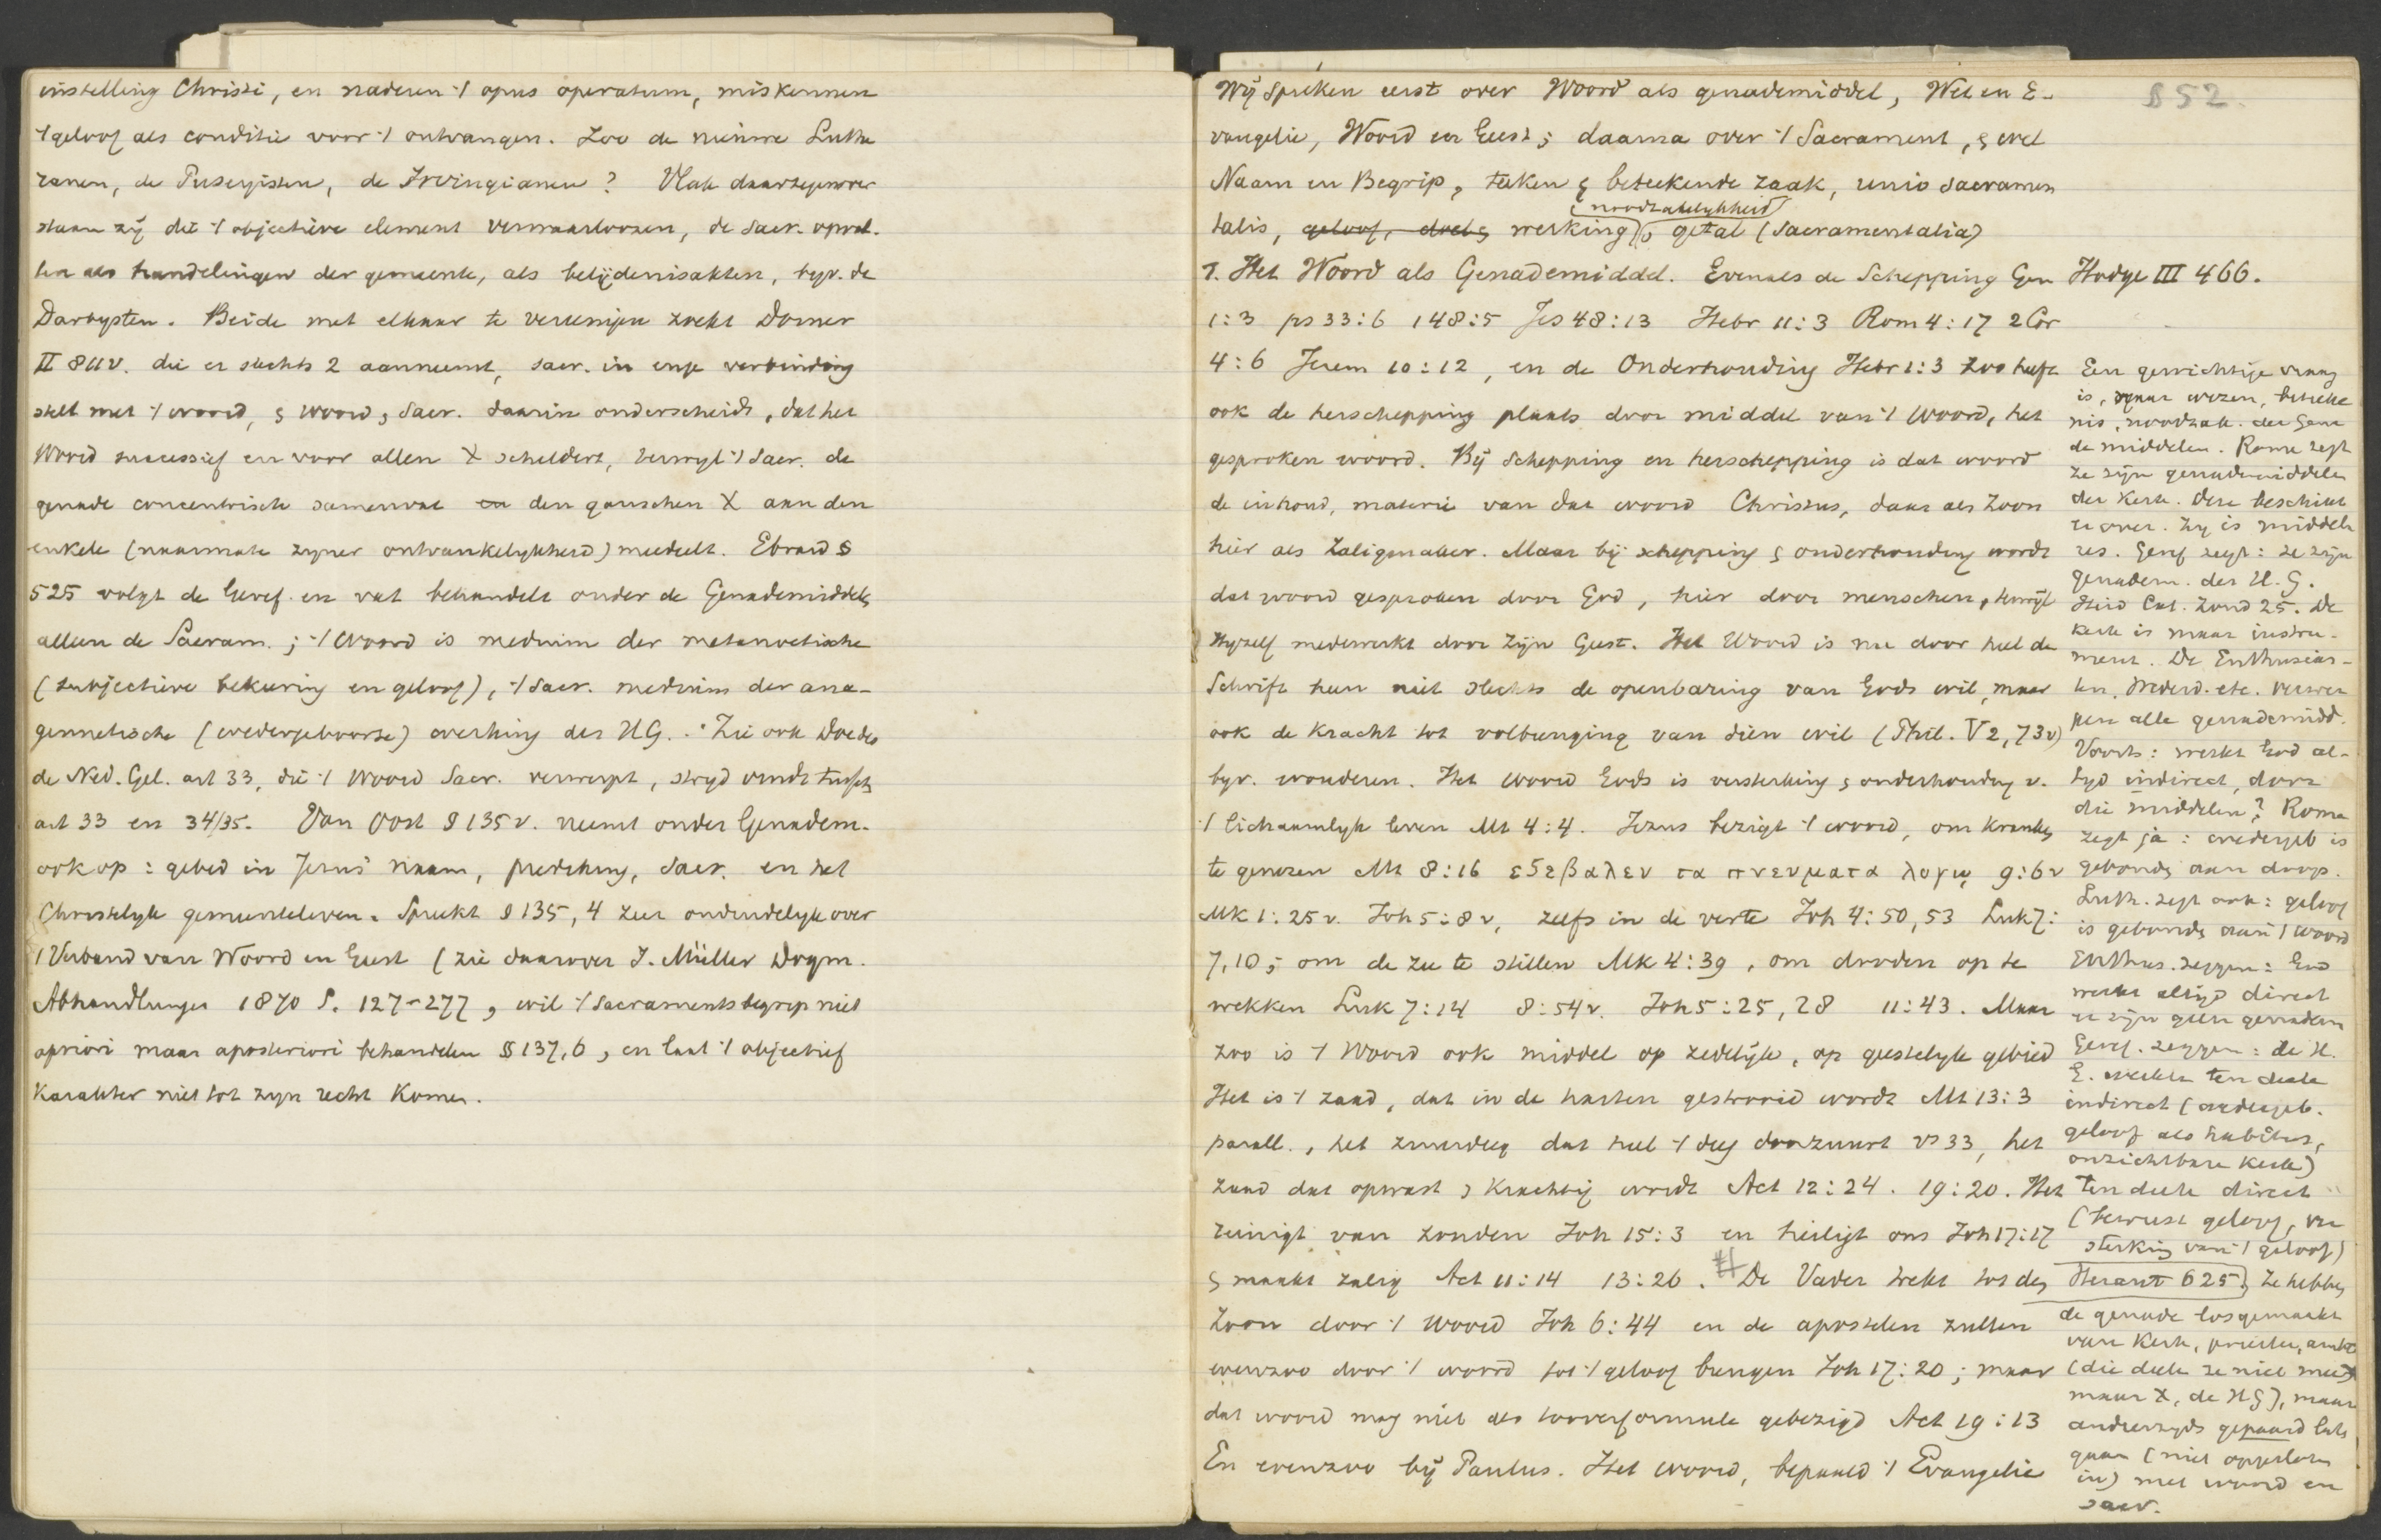 instelling Christi, en naderen 't opus operatum, miskennen
't geloof als conditie voor 't ontvangen. Zoo de nieuwe Luthe
ranen, de Puseyisten, de Irvingianen? Vlak daartegenover
staan zij die 't objectieve element verwaarloozen, de sacr. opvat.
ten als handelingen der gemeente, als belijdenisakten, byv. de
Darbysten. Beide met elkaar te vereenigen zoekt Dorner
II 811v. die er slechts 2 aanneemt, sacr. in enge verbinding
stelt met 't woord, & woord & sacr. daarin onderscheidt, dat het
Woord successief en voor allen X schildert, terwyl 't sacr. de
genade concentrisch samenvat en den ganschen X aan den
enkele (naarmate zyner ontvankelykheid) meedeelt. Ebrard §
525 volgt de Geref. en vat behandelt onder de Genademiddelen
alleen de Sacram.; 't Woord is medium der metanoetische
(subjectieve bekeering en geloof), 't sacr. medium der ana-
gennetische (wedergeboorte) werking des H.G. Zie ook Doedes
de Ned. Gel. art 33, die 't Woord Sacr. verwerpt, stryd vindt tusschen
art 33 en 34/35. Van Oost § 135v. neemt onder Genadem.
ook op: gebed in Jezus' naam, prediking, sacr. en het
Christelyk gemeenteleven. Spreekt § 135, 4 zeer onduidelyk over
't Verband van Woord en Geest (zie daarover J. Müller Dogm.
Abhandlungen 1870 S. 127-277, wil 't Sacramentsbegrip niet
apriori maar aposteriori behandelen § 137,6, en laat 't objectief
karakter niet tot zyn recht komen.
§ 52.
Wij spreken eerst over Woord als genademiddel, Wet en E-
vangelie, Woord en Geest; daarna over 't Sacrament, & wel
Naam en Begrip, teeken & beteekende zaak, unio sacramen
& noodzakelykheid
talis, geloof, doel & werking, getal (Sacramentalia)
1. Het Woord als Genademiddel. Evenals de Schepping Gen
1:3 ps 33:6 148:5 Jes 48:13 Hebr 11:3 Rom 4:17 2 Cor
4:6 Jerem 10:12, en de Onderhouding Hebr 1:3 zoo heeft
ook de herschepping plaats door middel van 't Woord, het
gesproken woord. Bij Schepping en herschepping is dat woord
de inhoud, materie van dat woord Christus, daar als Zoon
hier als Zaligmaker. Maar bij schepping & onderhouding wordt
dat woord gesproken door God, hier door menschen, terwijl
Hijzelf medewerkt door Zijn Geest. Het Woord is nu door heel de
Schrift heen niet slechts de openbaring van Gods wil, maar
ook de kracht tot volbrenging van dien wil (Phil. V 2, 73v)
byv. wonderen. Het woord Gods is versterking & onderhouding v.
't lichaamlyk leven Mt 4:4. Jezus bezigt 't woord, om kranken
te genezen Mt 8:16 εξεβαλεν τα πνευματα λογῳ 9:6v
Mk 1:25v. Joh 5:8v, zelfs in de verte Joh 4:50,53 Luk 7:
7,10; om de zee te stillen Mk 4:39, om dooden op te
wekken Luk 7:14 8:54v. Joh 5:25, 28 11:43. Maar
zoo is 't Woord ook middel op zedelijk, op geestelyk gebied
Het is 't zaad, dat in de harten gestrooid wordt Mt 13:3
parall., het zuurdeeg dat heel 't deeg doorzuurt vs 33, het
zaad dat opwast & krachtig wordt Act 12:24. 19:20. Het
reinigt van zonden Joh 15:3 en heiligt ons Joh 17:17
& maakt zalig Act 11:14 13:26. # De Vader trekt tot den
Zoon door 't woord Joh 6:44 en de apostelen zullen
evenzoo door 't woord tot 't geloof brengen Joh 17:20; maar
dat woord mag niet als tooverformule gebezigd Act 19:13
En evenzoo bij Paulus. Het woord, bepaald 't Evangelie
Hodge III 466.
Een gewichtige vraag
is, naar wezen, beteeke
nis, noodzak. der Gena
de middelen. Rome zegt
ze zijn genademiddelen
der Kerk. Deze beschikt
er over. Zij is middela
res. Geref zegt: ze zijn
genadem. des H.G.
Heid Cat. Zond 25. De
Kerk is maar instru-
ment. De Enthusias-
ten, Wederd. etc. verwer
pen alle genademidd.
Voorts: werkt God al-
tyd indirect, door
die middelen? Rome
zegt ja: wedergeb is
gebonden aan doop.
Luth. zegt ook: geloof
is gebonden aan 't woord
Enthus. zeggen: God
werkt altijd direct
er zijn geen genadem
Geref. zeggen: de H.
G. werkt ten deele
indirect (wedergeb.
geloof als habitus,
onzichtbare Kerk)
ten deele direct
(bewust geloof, ver
sterking van 't geloof)
Heraut 625. Ze hebben
de genade losgemaakt
van Kerk, priester, ambt
(die deelt ze niet mee
maar X, de HG), maar
anderzyds gepaard laten
gaan (niet opgesloten
in) met woord en
sacr.